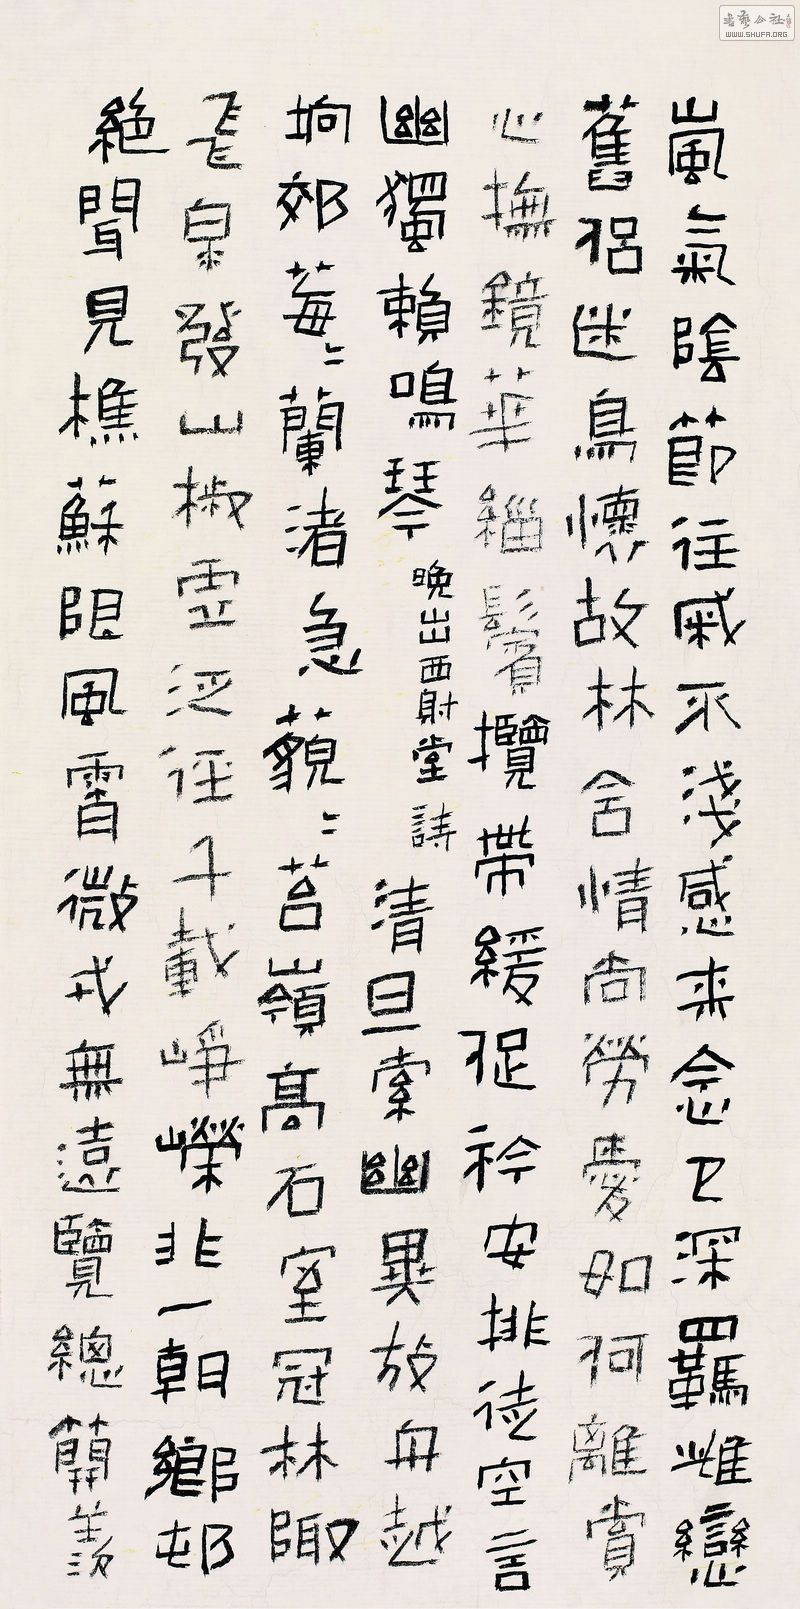 嵐氣陰節往戚不淺感来念已深羈雌戀
舊侶迷鳥懷故林含情尚勞愛如何離賞
心撫鏡華緇鬢攬帶緩促衿安排徒空言
幽獨賴鳴琴
晚出西射堂詩
清旦索幽異放舟越
坰郊莓〻蘭渚急藐〻苔嶺高石室冠林陬
飛泉發山椒虛泛徑千載崢嶸非一朝鄉邨
絕聞見樵蘇限風霄微戎無遠覽總羨
書藝公社
WWW.SHUFA.ORG